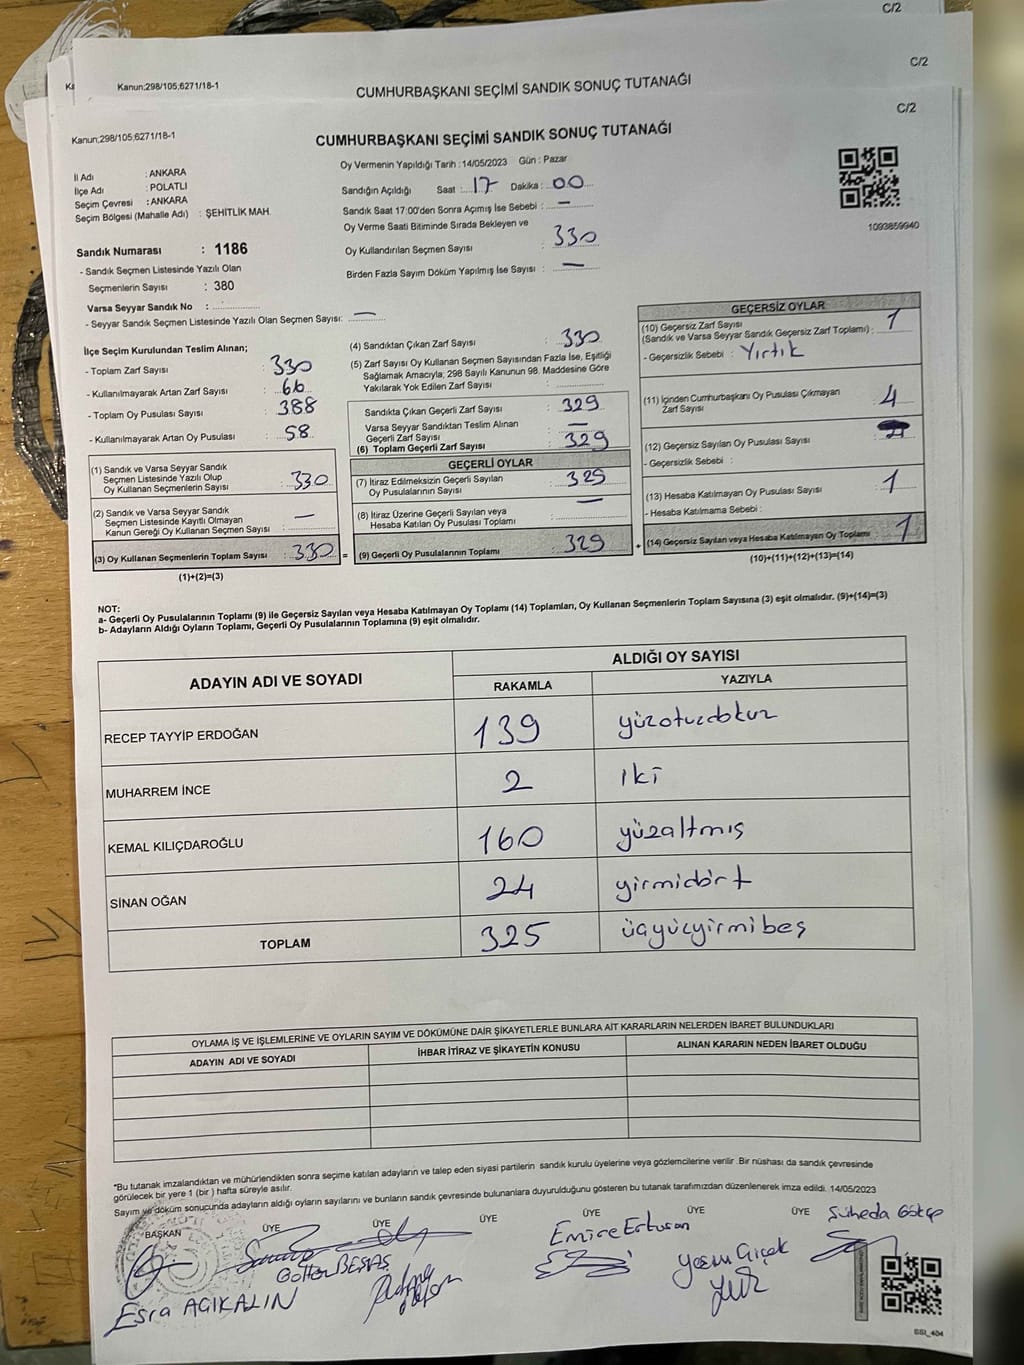 C/2
Kanun;298/105;6271/18-1
CUMHURBAŞKANI SEÇİMİ SANDIK SONUÇ TUTANAĞI
C/2
Kanun;298/105;6271/18-1
CUMHURBAŞKANI SEÇİMİ SANDIK SONUÇ TUTANAĞI
C/2
İl Adı : ANKARA
İlçe Adı : POLATLI
Seçim Çevresi : ANKARA
Seçim Bölgesi (Mahalle Adı) : ŞEHİTLİK MAH.
Oy Vermenin Yapıldığı Tarih : 14/05/2023 Gün : Pazar
Sandığın Açıldığı Saat : 17 Dakika : 00
Sandık Saat 17:00'den Sonra Açımış İse Sebebi : —
Oy Verme Saati Bitiminde Sırada Bekleyen ve
Oy Kullandırılan Seçmen Sayısı : 330
Birden Fazla Sayım Döküm Yapılmış İse Sayısı : —
1093859940
Sandık Numarası : 1186
- Sandık Seçmen Listesinde Yazılı Olan
Seçmenlerin Sayısı : 380
Varsa Seyyar Sandık No :
- Seyyar Sandık Seçmen Listesinde Yazılı Olan Seçmen Sayısı: —
İlçe Seçim Kurulundan Teslim Alınan;
- Toplam Zarf Sayısı : 330
- Kullanılmayarak Artan Zarf Sayısı : 66
- Toplam Oy Pusulası Sayısı : 388
- Kullanılmayarak Artan Oy Pusulası : 58
(1) Sandık ve Varsa Seyyar Sandık
Seçmen Listesinde Yazılı Olup
Oy Kullanan Seçmenlerin Sayısı : 330
(2) Sandık ve Varsa Seyyar Sandık
Seçmen Listesinde Kayıtlı Olmayan
Kanun Gereği Oy Kullanan Seçmen Sayısı : —
(3) Oy Kullanan Seçmenlerin Toplam Sayısı : 330 =
(1)+(2)=(3)
(4) Sandıktan Çıkan Zarf Sayısı : 330
(5) Zarf Sayısı Oy Kullanan Seçmen Sayısından Fazla İse, Eşitliği
Sağlamak Amacıyla; 298 Sayılı Kanunun 98. Maddesine Göre
Yakılarak Yok Edilen Zarf Sayısı :
Sandıkta Çıkan Geçerli Zarf Sayısı : 329
Varsa Seyyar Sandıktan Teslim Alınan
Geçerli Zarf Sayısı : —
(6) Toplam Geçerli Zarf Sayısı : 329
GEÇERLİ OYLAR
(7) İtiraz Edilmeksizin Geçerli Sayılan
Oy Pusulalarının Sayısı : 325
(8) İtiraz Üzerine Geçerli Sayılan veya
Hesaba Katılan Oy Pusulası Toplamı : —
(9) Geçerli Oy Pusulalarının Toplamı : 329 +
GEÇERSİZ OYLAR
(10) Geçersiz Zarf Sayısı
(Sandık ve Varsa Seyyar Sandık Geçersiz Zarf Toplamı) : 1
- Geçersizlik Sebebi : Yırtık
(11) İçinden Cumhurbaşkanı Oy Pusulası Çıkmayan
Zarf Sayısı : 4
(12) Geçersiz Sayılan Oy Pusulası Sayısı :
- Geçersizlik Sebebi :
(13) Hesaba Katılmayan Oy Pusulası Sayısı : 1
- Hesaba Katılmama Sebebi :
(14) Geçersiz Sayılan veya Hesaba Katılmayan Oy Toplamı : 1
(10)+(11)+(12)+(13)=(14)
NOT:
a- Geçerli Oy Pusulalarının Toplamı (9) ile Geçersiz Sayılan veya Hesaba Katılmayan Oy Toplamı (14) Toplamları, Oy Kullanan Seçmenlerin Toplam Sayısına (3) eşit olmalıdır. (9)+(14)=(3)
b- Adayların Aldığı Oyların Toplamı, Geçerli Oy Pusulalarının Toplamına (9) eşit olmalıdır.
ADAYIN ADI VE SOYADI ALDIĞI OY SAYISI
RAKAMLA YAZIYLA
RECEP TAYYİP ERDOĞAN 139 yüzotuzdokuz
MUHARREM İNCE 2 iki
KEMAL KILIÇDAROĞLU 160 yüzaltmış
SİNAN OĞAN 24 yirmidört
TOPLAM 325 üçyüzyirmibeş
OYLAMA İŞ VE İŞLEMLERİNE VE OYLARIN SAYIM VE DÖKÜMÜNE DAİR ŞİKAYETLERLE BUNLARA AİT KARARLARIN NELERDEN İBARET BULUNDUKLARI
ADAYIN ADI VE SOYADI İHBAR İTİRAZ VE ŞİKAYETİN KONUSU ALINAN KARARIN NEDEN İBARET OLDUĞU
*Bu tutanak imzalandıktan ve mühürlendikten sonra seçime katılan adayların ve talep eden siyasi partilerin sandık kurulu üyelerine veya gözlemcilerine verilir .Bir nüshası da sandık çevresinde
görülecek bir yere 1 (bir ) hafta süreyle asılır.
Sayım ve döküm sonucunda adayların aldığı oyların sayılarını ve bunların sandık çevresinde bulunanlara duyurulduğunu gösteren bu tutanak tarafımızdan düzenlenerek imza edildi. 14/05/2023
BAŞKAN ÜYE ÜYE ÜYE ÜYE ÜYE ÜYE
Esra AÇIKALIN
BEŞTAŞ
Emire Ertusan
Yasin Çiçek
Şüheda Gökçe
SSI_404